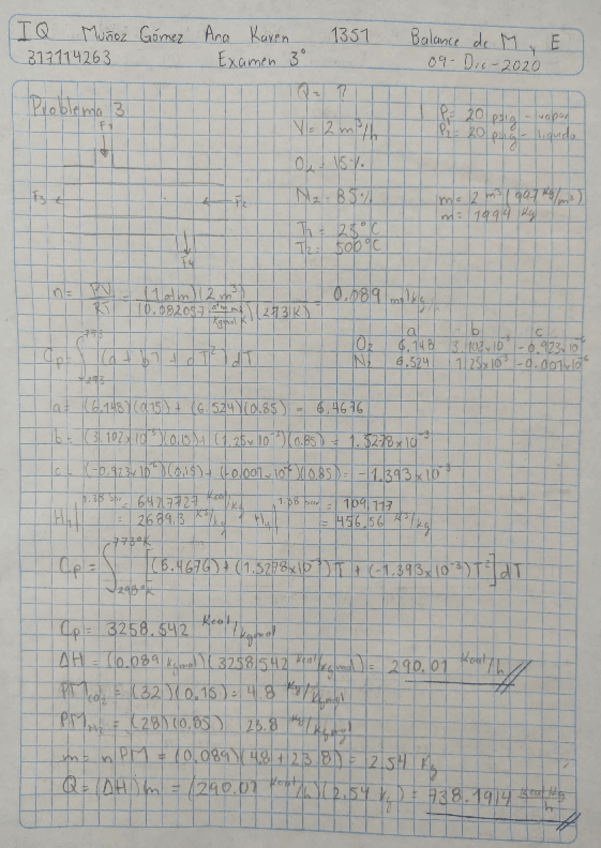 IQ Muñoz Gómez Ana Karen 1351 Balance de M y E
317114263 Examen 3° 09-Dic-2020
Problema 3
Q= ?
V= 2 m³/h
O₂ = 15%
N₂ = 85%
T₁ = 25°C
T₂ = 500°C
P₁= 20 psig - vapor
P₂= 20 psig - liquido
m= 2 m³ (997 Kg/m³)
m= 1994 Kg
F1
F3
F2
F4
n= PV/RT = (1 atm)(2 m³)/(0.082057 atm m³/Kgmol K)(273K) = 0.089 mol/kg
a b c
O₂ 6.148 3.102x10⁻³ -0.923x10⁻⁶
N₂ 6.524 1.25x10⁻³ -0.001x10⁻⁶
Cp= ∫ (a + bT + cT²) dT
a= (6.148)(0.15) + (6.524)(0.85) = 6.4676
b= (3.102x10⁻³)(0.15) + (1.25x10⁻³)(0.85) = 1.5278x10⁻³
c= (-0.923x10⁻⁶)(0.15) + (-0.001x10⁻⁶)(0.85) = -1.393x10⁻³
= 642.7727 Kcal/kg = 109.117
= 2689.3 KJ/kg = 456.56 KJ/kg
Cp= ∫ 298°K 773°K [(6.4676) + (1.5278x10⁻³)T + (-1.393x10⁻³)T²] dT
Cp= 3258.542 Kcal/kgmol
ΔH = (0.089 kgmol)(3258.542 Kcal/kgmol) = 290.01 Kcal/h
PM = (32)(0.15) = 4.8 Kg/Kgmol
PM = (28)(0.85) 23.8 Kg/Kgmol
m= nPM = (0.089)(4.8 + 23.8) = 2.54 Kg
Q= (ΔH)m = (290.01 Kcal/h)(2.54 Kg) = 738.1914 Kcal Kg/h